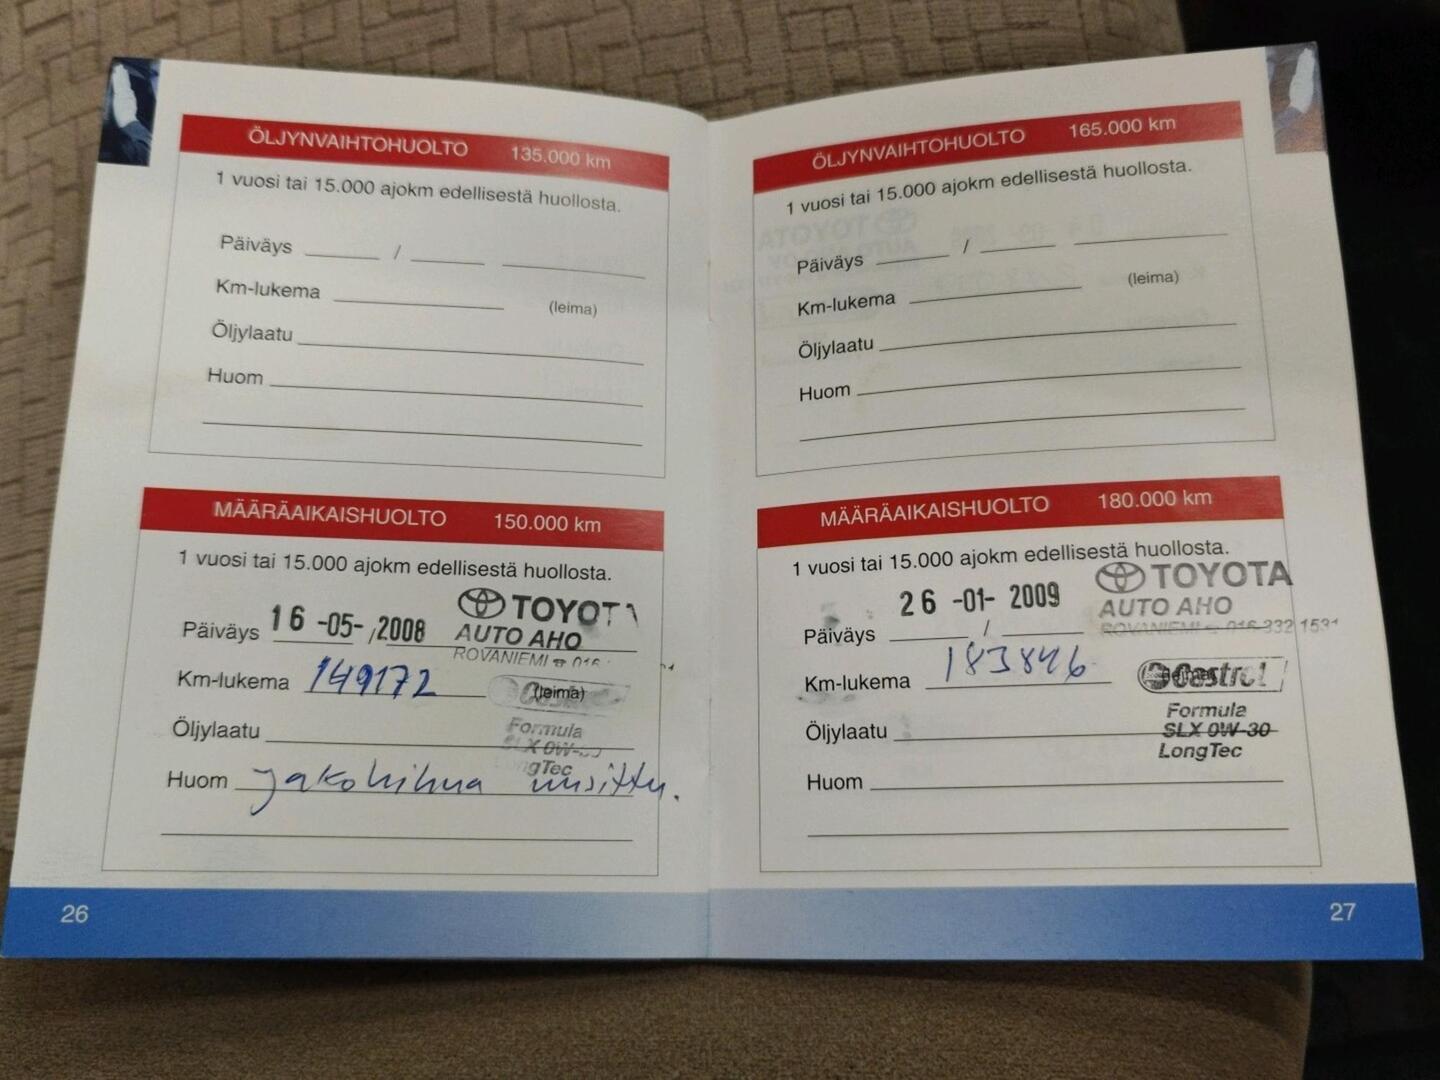 ÖLJYNVAIHTOHUOLTO 135.000 km
1 vuosi tai 15.000 ajokm edellisestä huollosta.
Päiväys /
Km-lukema
(leima)
Öljylaatu
Huom
MÄÄRÄAIKAISHUOLTO 150.000 km
1 vuosi tai 15.000 ajokm edellisestä huollosta.
TOYOT
Päiväys 16 -05- / 2008
AUTO AHO
ROVANIEMI ☎ 016
Km-lukema 149172
(leima)
Öljylaatu
Formula
LongTec
Huom jakohihna uusittu.
26
ÖLJYNVAIHTOHUOLTO 165.000 km
1 vuosi tai 15.000 ajokm edellisestä huollosta.
Päiväys /
Km-lukema
(leima)
Öljylaatu
Huom
MÄÄRÄAIKAISHUOLTO 180.000 km
1 vuosi tai 15.000 ajokm edellisestä huollosta.
TOYOTA
Päiväys 26 -01- 2009 /
AUTO AHO
ROVANIEMI ☎ 016-332 1531
Km-lukema 183846
Castrol
Öljylaatu
Formula
SLX 0W-30
LongTec
Huom
27